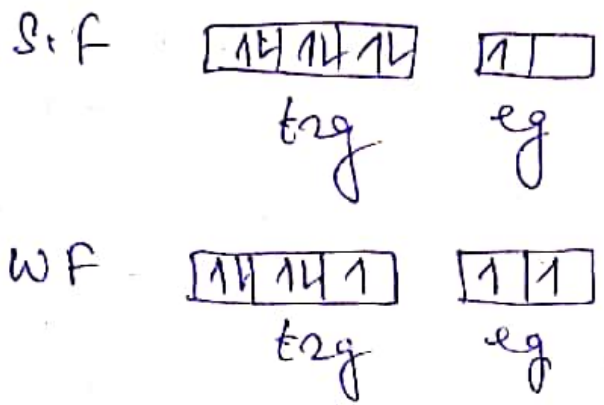 S.F 1L 1L 1L 1
t2g eg
WF 1L 1L 1 1 1
t2g eg